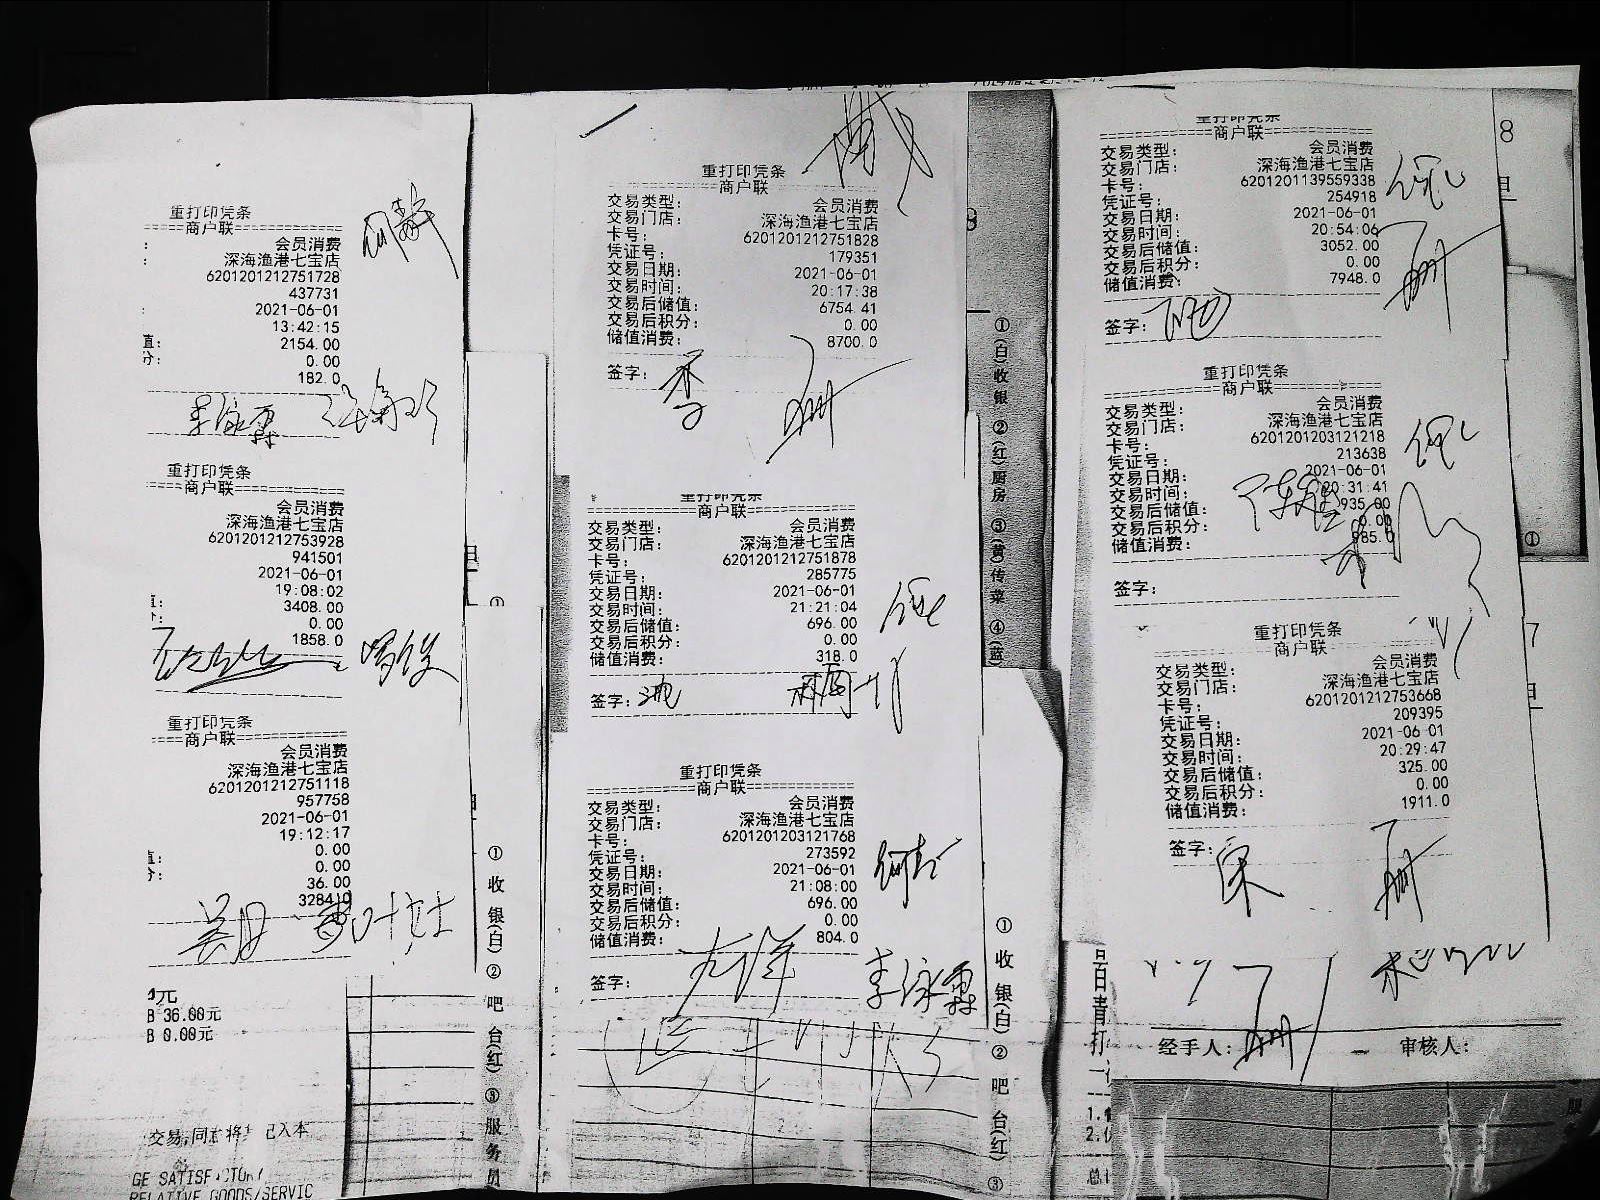 重打印凭条
==商户联==
会员消费
深海渔港七宝店
6201201212751728
437731
2021-06-01
13:42:15
值: 2154.00
分: 0.00
182.0
李泳霖
重打印凭条
==商户联==
会员消费
深海渔港七宝店
6201201212753928
941501
2021-06-01
19:08:02
3408.00
0.00
1858.0
重打印凭条
==商户联==
会员消费
深海渔港七宝店
6201201212751118
957758
2021-06-01
19:12:17
值: 0.00
分: 0.00
36.00
3284.0
元
B 36.00元
B 0.00元
GE SATISFACTORY
RELATIVE GOODS/SERVIC
①收银(白)②吧台(红)③服务员
重打印凭条
==商户联==
交易类型: 会员消费
交易门店: 深海渔港七宝店
卡号: 6201201212751828
凭证号: 179351
交易日期: 2021-06-01
交易时间: 20:17:38
交易后储值: 6754.41
交易后积分: 0.00
储值消费: 8700.0
签字: 李
重打印凭条
==商户联==
交易类型: 会员消费
交易门店: 深海渔港七宝店
卡号: 6201201212751878
凭证号: 285775
交易日期: 2021-06-01
交易时间: 21:21:04
交易后储值: 696.00
交易后积分: 0.00
储值消费: 318.0
签字:
重打印凭条
==商户联==
交易类型: 会员消费
交易门店: 深海渔港七宝店
卡号: 6201201203121768
凭证号: 273592
交易日期: 2021-06-01
交易时间: 21:08:00
交易后储值: 696.00
交易后积分: 0.00
储值消费: 804.0
签字:
李泳霖
①(白)收银 ②(红)厨房 ③(黄)传菜 ④(蓝)
①收银(白)②吧台(红)③
重打印凭条
==商户联==
交易类型: 会员消费
交易门店: 深海渔港七宝店
卡号: 6201201139559338
凭证号: 254918
交易日期: 2021-06-01
交易时间: 20:54:06
交易后储值: 3052.00
交易后积分: 0.00
储值消费: 7948.0
签字:
重打印凭条
==商户联==
交易类型: 会员消费
交易门店: 深海渔港七宝店
卡号: 6201201203121218
凭证号: 213638
交易日期: 2021-06-01
交易时间: 20:31:41
交易后储值: 935.00
交易后积分: 0.00
储值消费: 985.0
签字:
重打印凭条
商户联
交易类型: 会员消费
交易门店: 深海渔港七宝店
卡号: 6201201212753668
凭证号: 209395
交易日期: 2021-06-01
交易时间: 20:29:47
交易后储值: 325.00
交易后积分: 0.00
储值消费: 1911.0
签字:
经手人: 审核人:
8
7
①